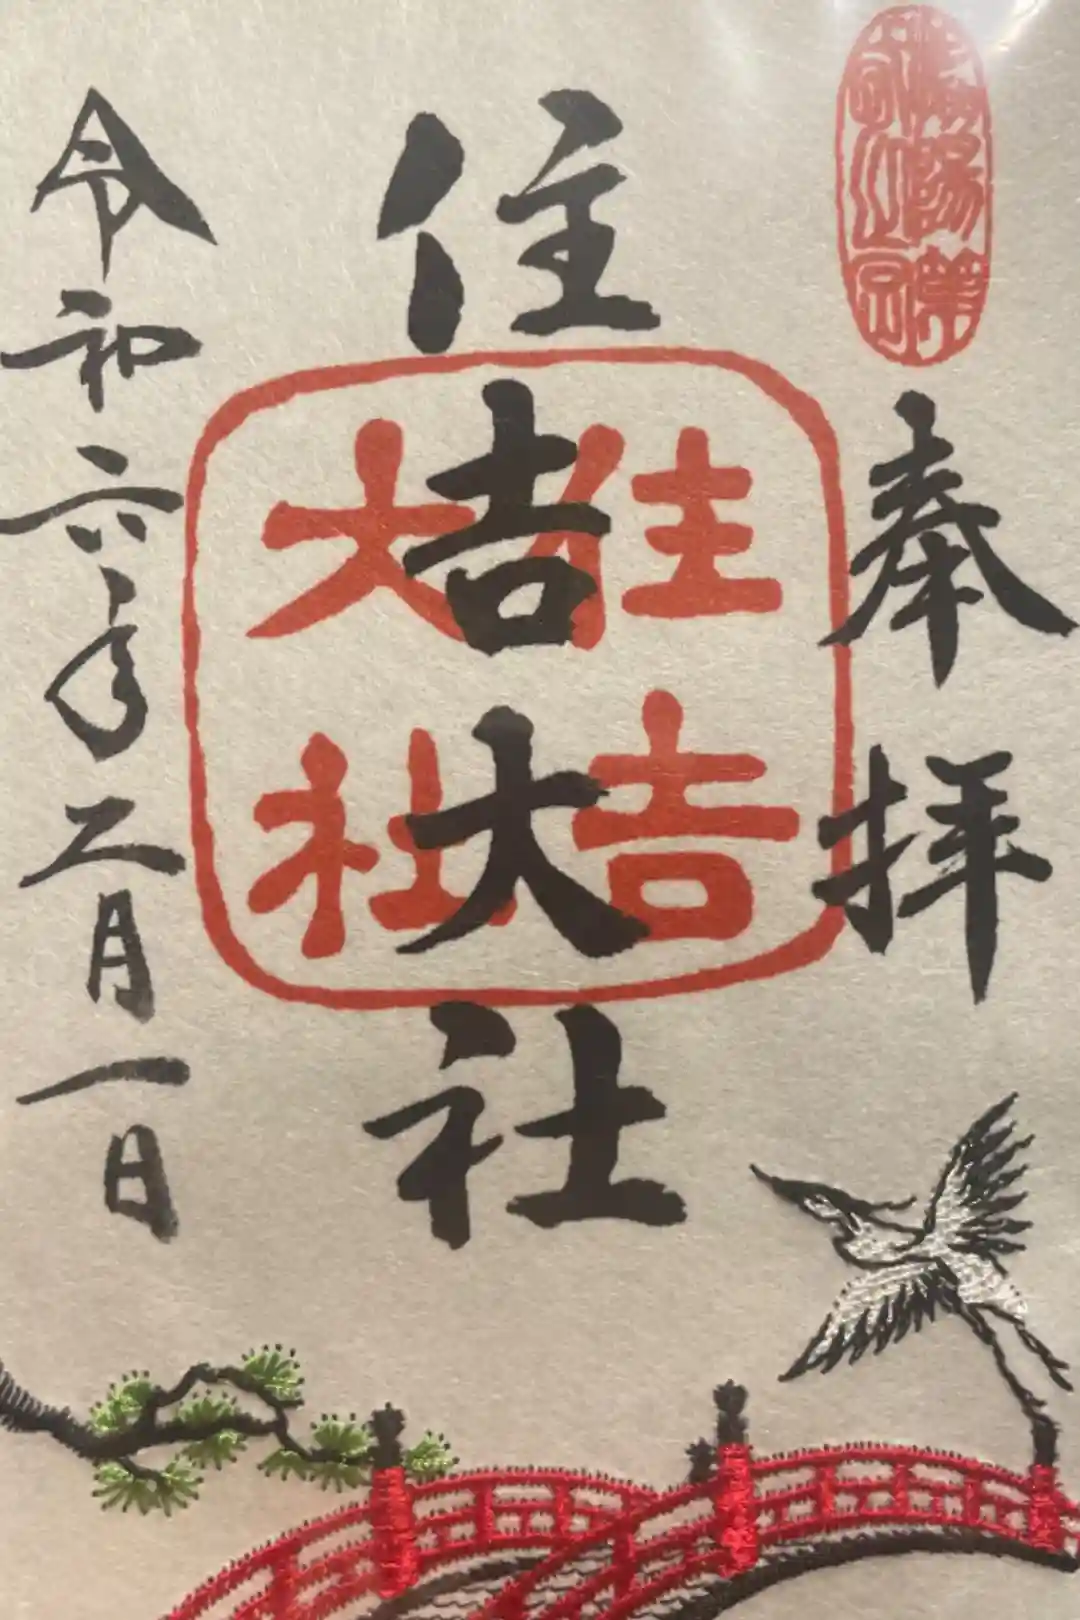 奉拝
住吉大社
住吉
大社
令和六年二月一日